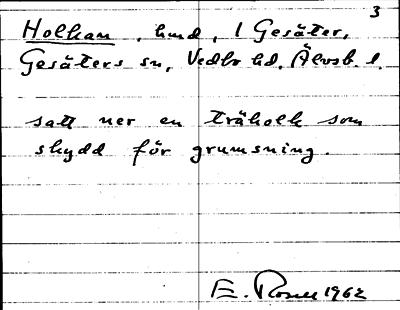 3
Holkan, hmd, 1 Gesäter,
Gesäters sn, Vedbo hd, Älvsb. l.
satt ner en träholk som
skydd för grumsning.
E. Rosell 1962